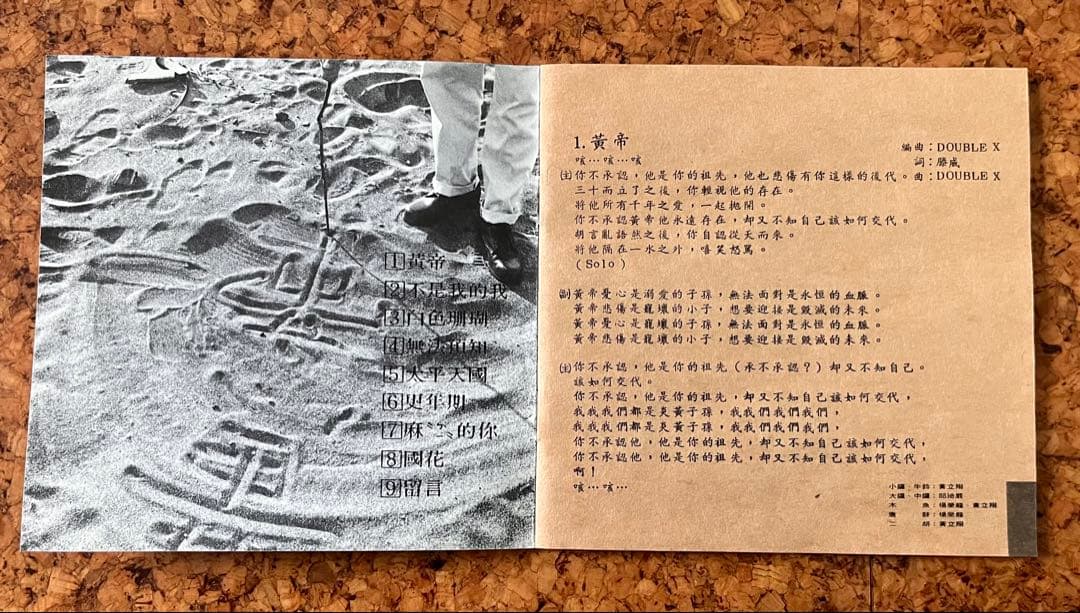 1黃帝
2不是我的我
3白色珊瑚
4無法預知
5太平天國
6更年期
7麻 的你
8國花
9留言
1. 黃帝
編曲：DOUBLE X
咳…咳…咳
詞：滕威
㊟你不承認，他是你的祖先，他也悲傷有你這樣的後代。曲：DOUBLE X
三十而立了之後，你輕視他的存在。
將他所有千年之愛，一起拋開。
你不承認黃帝他永遠存在，却又不知自己該如何交代。
胡言亂語然之後，你自認從天而來。
將他隔在一水之片，嘻笑怒罵。
(Solo)
副黃帝憂心是溺愛的子孫，無法面對是永恒的血脈。
黃帝悲傷是寵壞的小子，想要迎接是毀滅的未來。
黃帝憂心是寵壞的子孫，無法面對是永恒的血脈。
黃帝悲傷是寵壞的小子，想要迎接是毀滅的未來。
主你不承認，他是你的祖先（承不承認？）却又不知自己。
該如何交代。
你不承認他，他是你的祖先，却又不知自己該如何交代，
我我我們都是炎黃子孫，我我們我們我們，
我我我們都是炎黃子孫，我我們我們我們，
你不承認他，他是你的祖先，却又不知自己該如何交代，
你不承認他，他是你的祖先，却又不知自己該如何交代，
啊！
咳…咳…
小鑼、牛鈴：黃立翔
大鑼、中鑼：
木　魚：楊榮鐘、黃立翔
鼓：楊榮鐘
二　胡：黃立翔